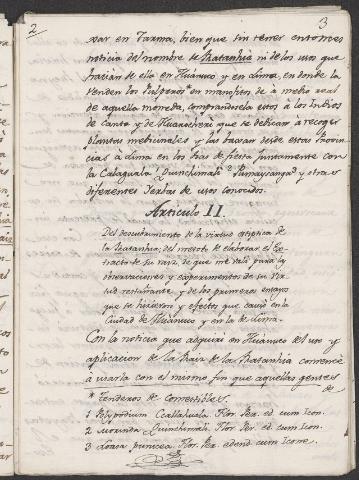 2
3
var en Tarma, bien que sin tener entonces
noticia del nombre de Ratanhia ni de los usos que
hacian de ella en Huánuco y en Lima, en donde la
venden los Pulperos* en manojitos de à medio real
de aquella moneda, comprandosela estos à los Indios
de Canta y de Huarocheri que se dedican à recoger
plantas medicinales y las baxan desde estas Provin
cias à Lima en los dias de fiesta juntamente con
la Calaguala 1 Quinchimali 2 y otras
diferentes Yerbas de usos conocidos.
Articulo II.
Del descubrimiento de la virtud estiptica de
la Ratanhia; del metodo de elaborar el Ex-
tracto de su raiz, de que me valí para las
observaciones y experimentos de su vir-
tud restriñente, y de los primeros ensayos
que se hicieron y efectos que causó en la
Ciudad de Huánuco y en la de Lima.
Con la noticia que adquirí en Huánuco del uso y
aplicacion de la Raiz de la Ratanhia comencé
à usarla con el mismo fin que aquellas gentes
de
* Tenderos de Comestibles.
1 Polypodium Ccallahuala Flor. Per. ed. cum Icon.
2 Quinchimali Flor. Per. ed. cum Icon.
3 Loasa punicea Flor. Per. edend. cum Icone.